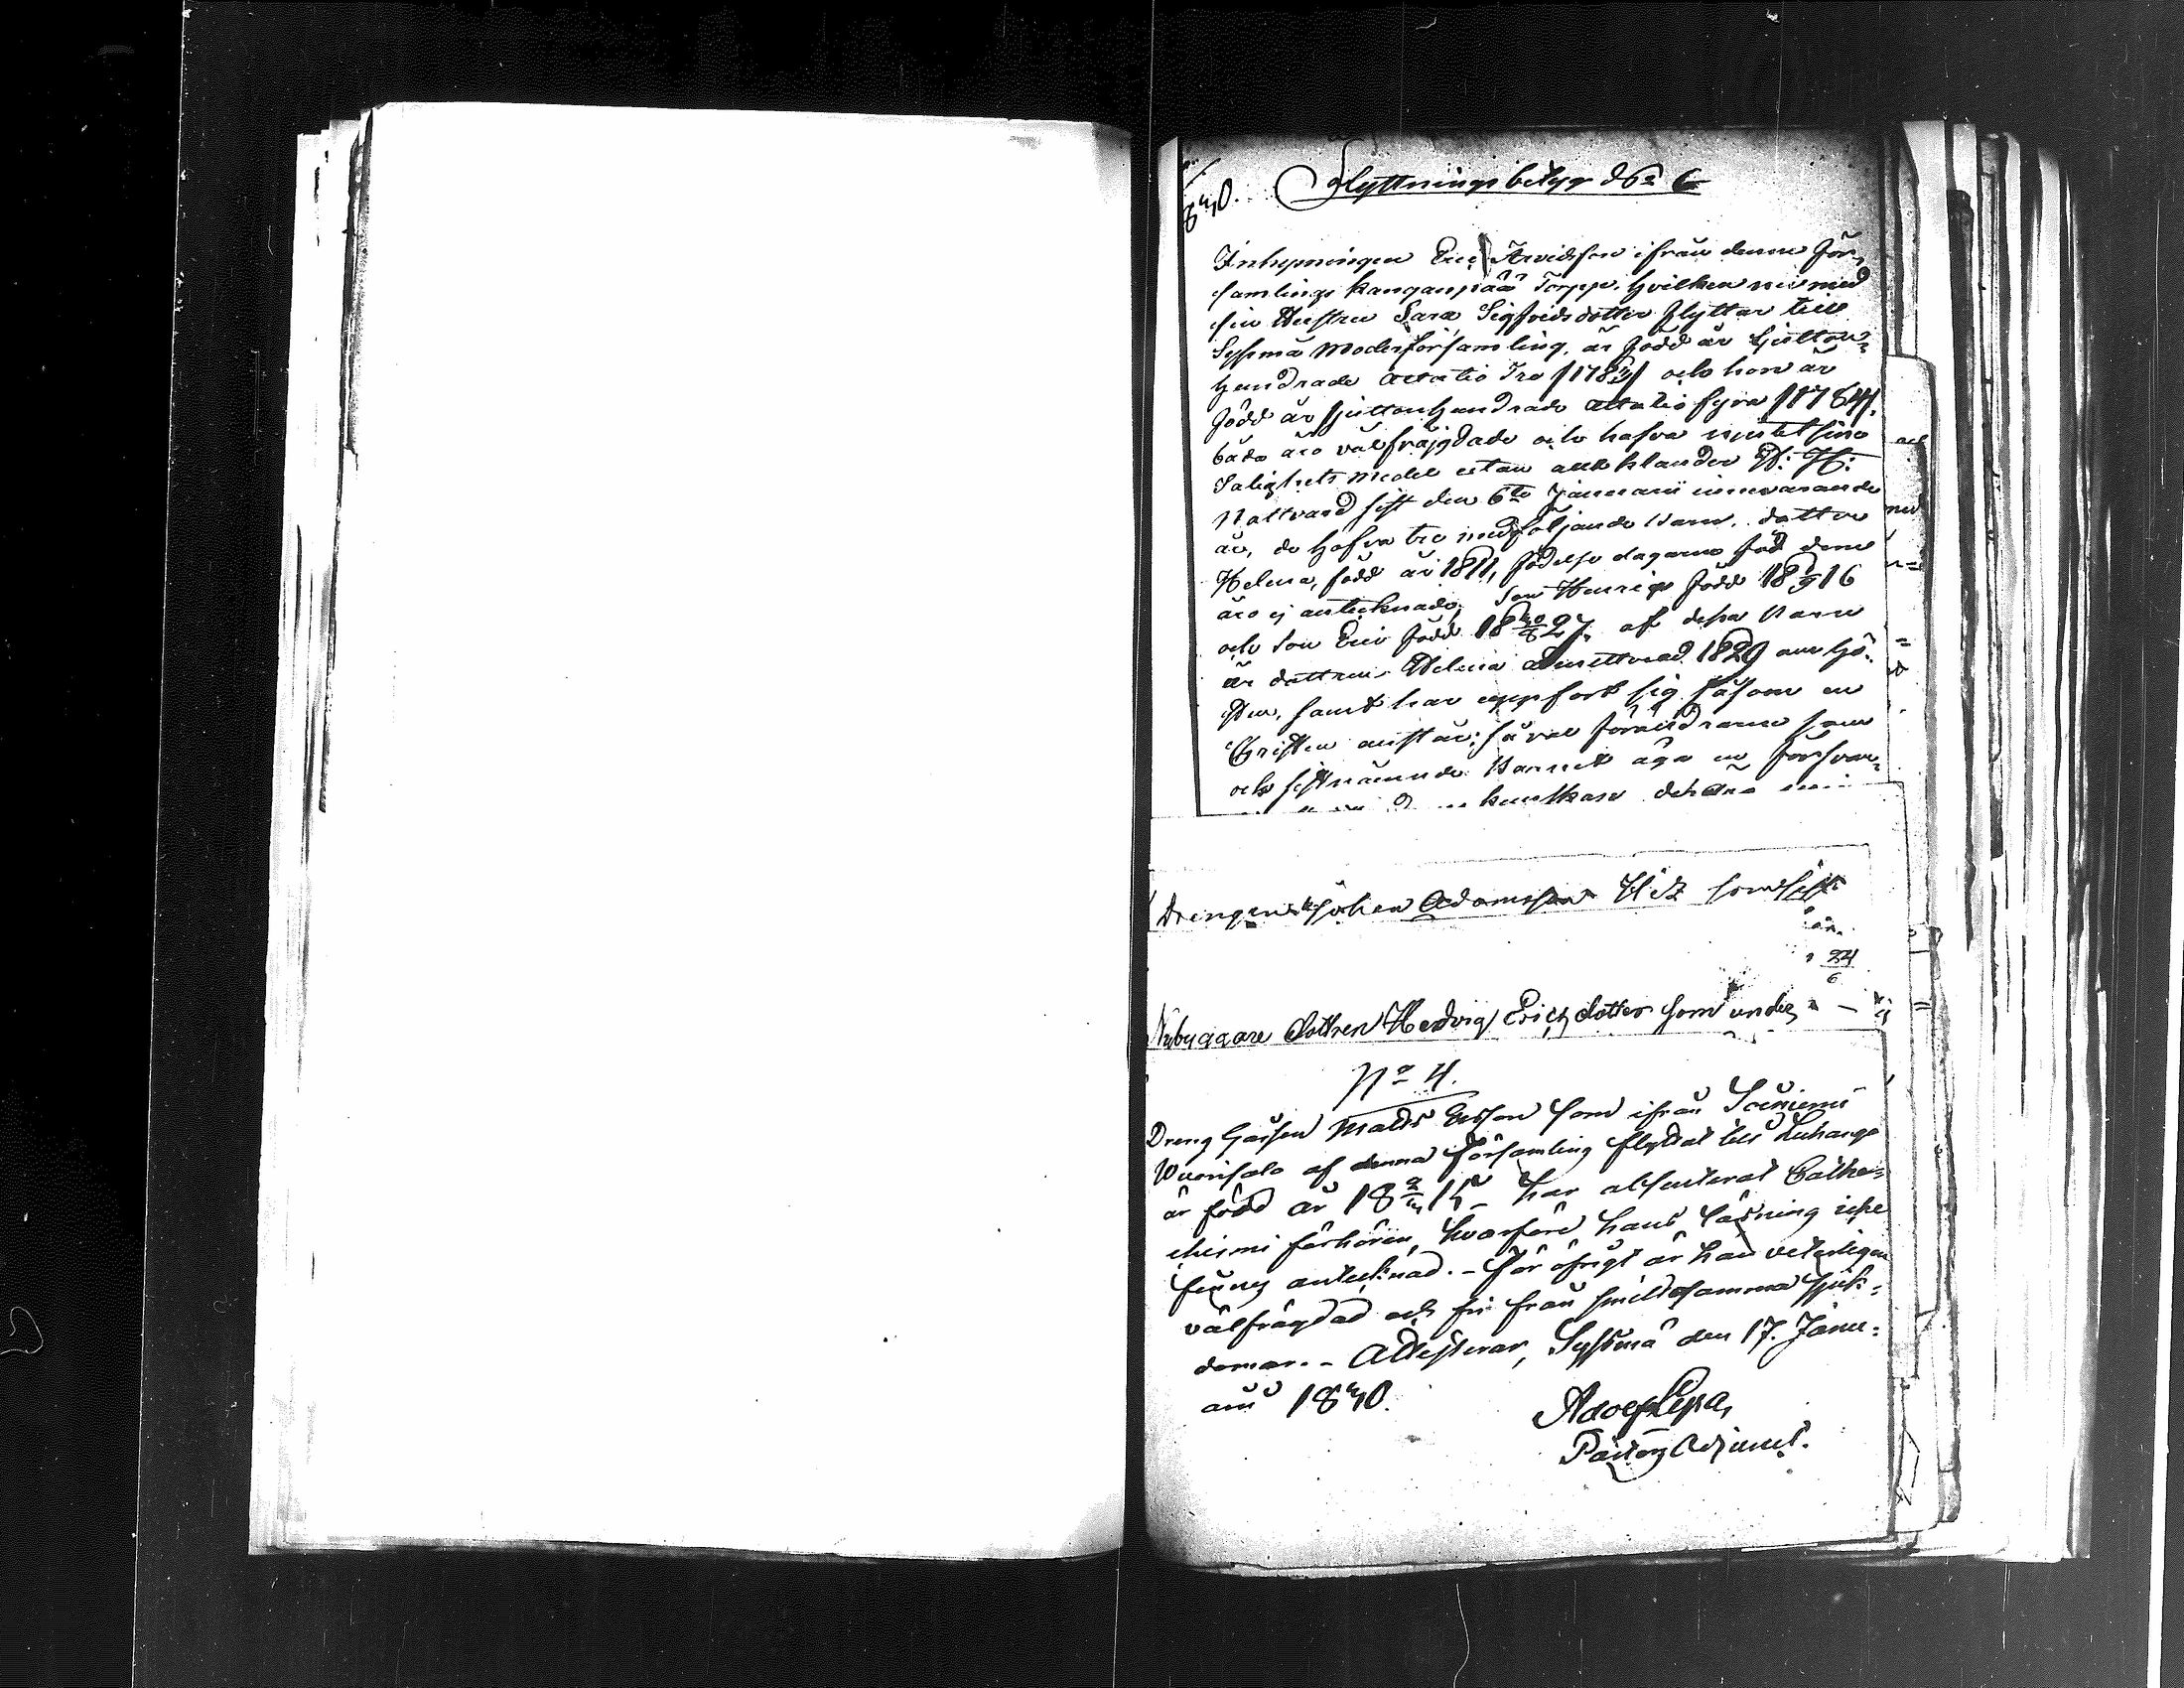 1840.
Flyttningsbetyg No 6
Inhysningen Eric Arvidsson ifrån denne För-
samlings Kanganpää Torpp, hvilken nu med
sin Hustru Sara Sigfridsdotter flyttar till
Syssmä Moderförsamling, är född år Sjutton-
hundrade åttatio Tre /1783/ och hon är
född år sjuttonhundrade åttatio fyra /1784/,
båda äro välfräjgdade och hafva njutit sina
Salighets medel utan allt klander H: H:
Nattvard sist den 6te Januarii innevarande
år, de hafva tre medföljande Barn, dottren
Helena, född år 1811, födelse dagarne
äro ej antecknade, Son Henric född 18 16
och Son Eric född 18 27, af dessa Barn
är dottren Helena admitterad 1829 om hö-
sten, samt har uppfört sig såsom en
Christen anstår; så väl föräldrarne som
och sistnämnde Barnet äga en försvar-
kunskap
Drengen Johan Adamsson som sist
år
24
6
Nybyggare dottren Hedvig Ericsdotter som under
No 4.
Dreng Gåssen Matts Ersson som ifrån
Wuorisalo af denna Församling flyttat till Luhango
är född år 18 15 har absenterat Cathe-
chismi förhören, hvarföre hans läsning icke
finnes antecknad. - För öfrigt är han veterligen
välfrägdad och fri från smittosamma sjuk-
domar. - Attesterar, Syssmä den 17. Janu-
arii 1840.
Adolf
Pastors Adjunct.